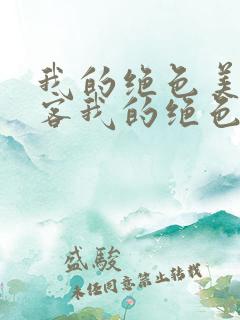 我的绝色美
客我的绝色
盛駿
未任同意禁止转载